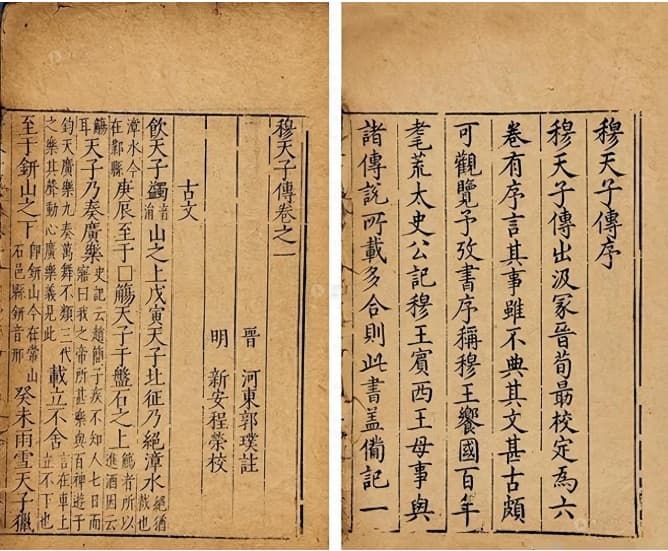 穆天子傳序
穆天子傳出汲冢晉荀最校定為六
卷有序言其事雖不典其文甚古頗
可觀覽予攷書序稱穆王饗國百年
耄荒太史公記穆王賔西王母事與
諸傳說所載多合則此書盖備記一
穆天子傳卷之一
晉 河東郭璞註
明 新安程榮校
古文
飲天子蠲音涓山之上戊寅天子北征乃絕漳水絕猶截也
漳水今在鄴縣庚辰至于□觴天子于盤石之上觴者所以進酒因云
觴耳天子乃奏廣樂史記云趙簡子疾不知人七日而寤曰我之帝所甚樂與百神遊于
鈞天廣樂九奏萬舞不類三代之樂其聲動心廣樂義見此載立不舍言在車上立不下也
至于鈃山之下即鈃山今在常山石邑縣鈃音邢癸未雨雪天子獵